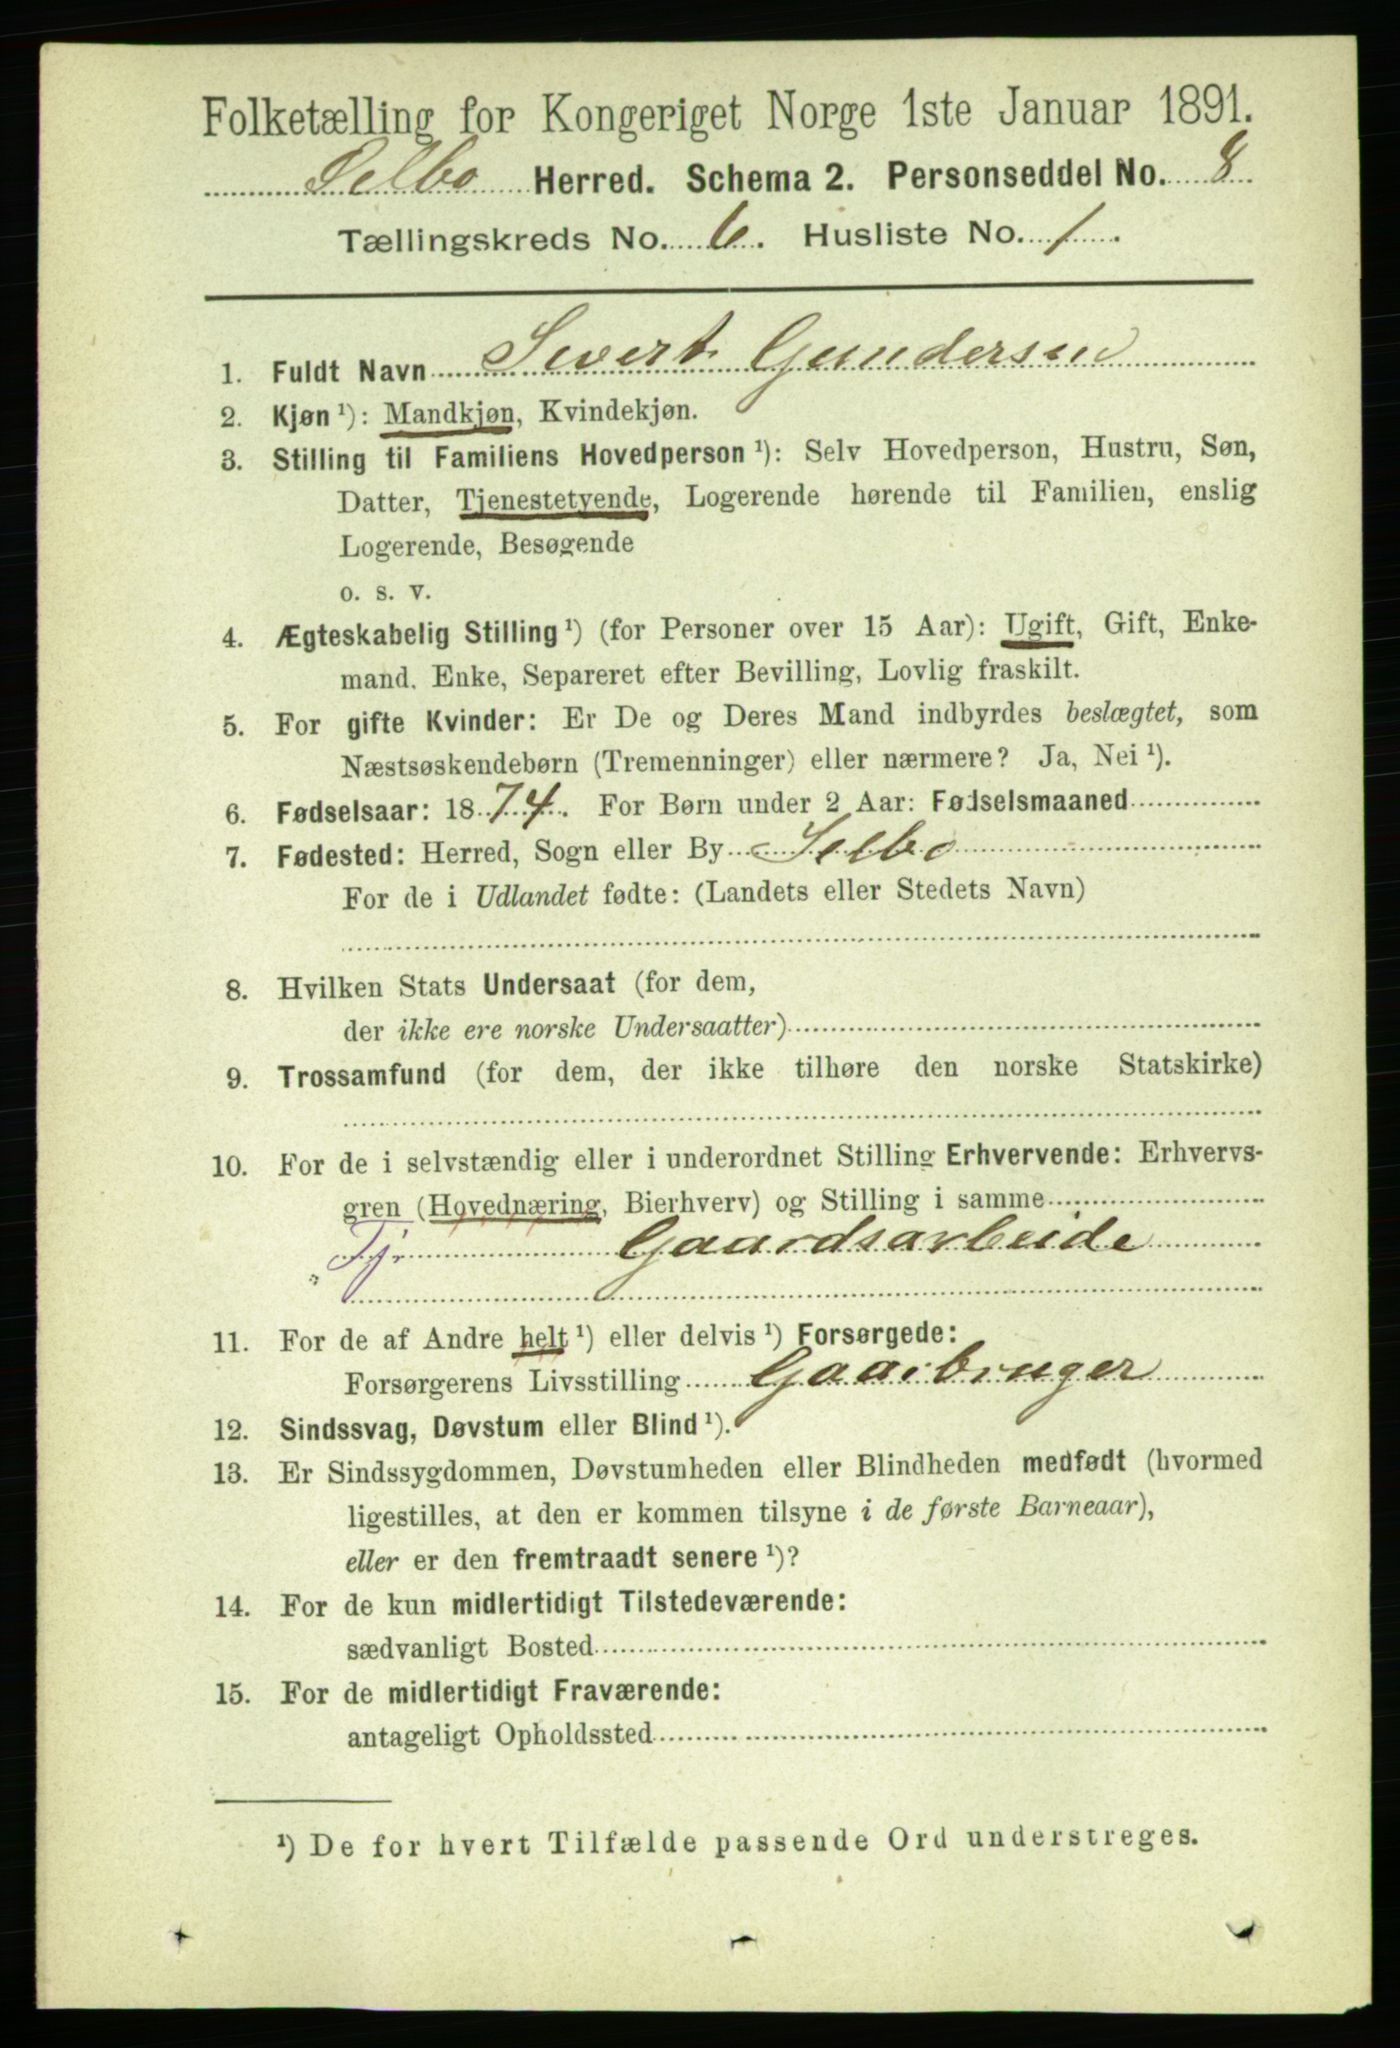 Folketælling for Kongeriget Norge 1ste Januar 1891.
Selbo Herred. Schema 2. Personseddel No. 8
Tællingskreds No. 6. Husliste No. 1.
1. Fuldt Navn Sivert Gundersen
2. Kjøn ¹): Mandkjøn, Kvindekjøn.
3. Stilling til Familiens Hovedperson ¹): Selv Hovedperson, Hustru, Søn,
Datter, Tjenestetyende, Logerende hørende til Familien, enslig
Logerende, Besøgende
o. s. v.
4. Ægteskabelig Stilling ¹) (for Personer over 15 Aar): Ugift, Gift, Enke-
mand, Enke, Separeret efter Bevilling, Lovlig fraskilt.
5. For gifte Kvinder: Er De og Deres Mand indbyrdes beslægtet, som
Næstsøskendebørn (Tremenninger) eller nærmere? Ja, Nei ¹).
6. Fødselsaar: 1874. For Børn under 2 Aar: Fødselsmaaned
7. Fødested: Herred, Sogn eller By Selbo
For de i Udlandet fødte: (Landets eller Stedets Navn)
8. Hvilken Stats Undersaat (for dem,
der ikke ere norske Undersaatter)
9. Trossamfund (for dem, der ikke tilhøre den norske Statskirke)
10. For de i selvstændig eller i underordnet Stilling Erhvervende: Erhvervs-
gren (Hovednæring, Bierhverv) og Stilling i samme
Tj. Gaardsarbeide
11. For de af Andre helt ¹) eller delvis ¹) Forsørgede:
Forsørgerens Livsstilling Gaarbruger
12. Sindssvag, Døvstum eller Blind ¹).
13. Er Sindssygdommen, Døvstumheden eller Blindheden medfødt (hvormed
ligestilles, at den er kommen tilsyne i de første Barneaar),
eller er den fremtraadt senere ¹)?
14. For de kun midlertidigt Tilstedeværende:
sædvanligt Bosted
15. For de midlertidigt Fraværende:
antageligt Opholdssted
¹) De for hvert Tilfælde passende Ord understreges.